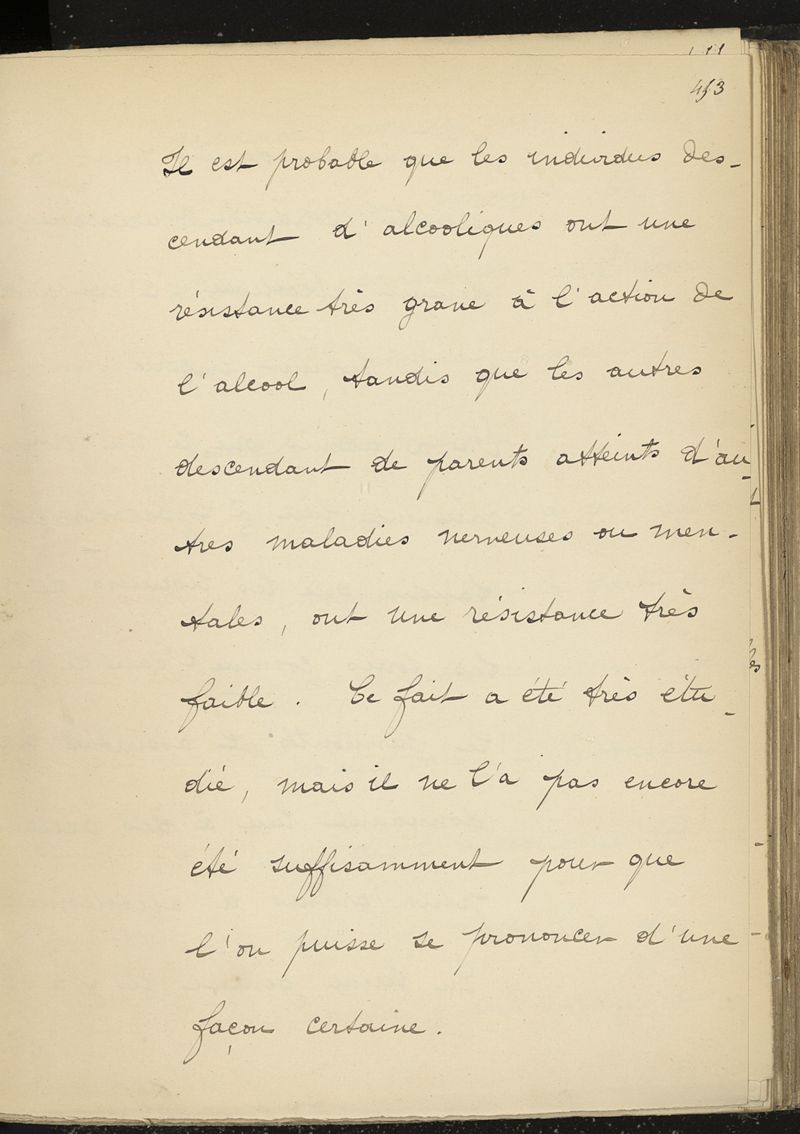 453
Il est probable que les individus des-
cendant d'alcooliques ont une
résistance très grave à l'action de
l'alcool, tandis que les autres
descendant de parents atteints d'au-
tres maladies nerveuses ou men-
tales, ont une résistance très
faible. Ce fait a été très étu-
dié, mais il ne l'a pas encore
été suffisamment pour que
l'on puisse se prononcer d'une
façon certaine.